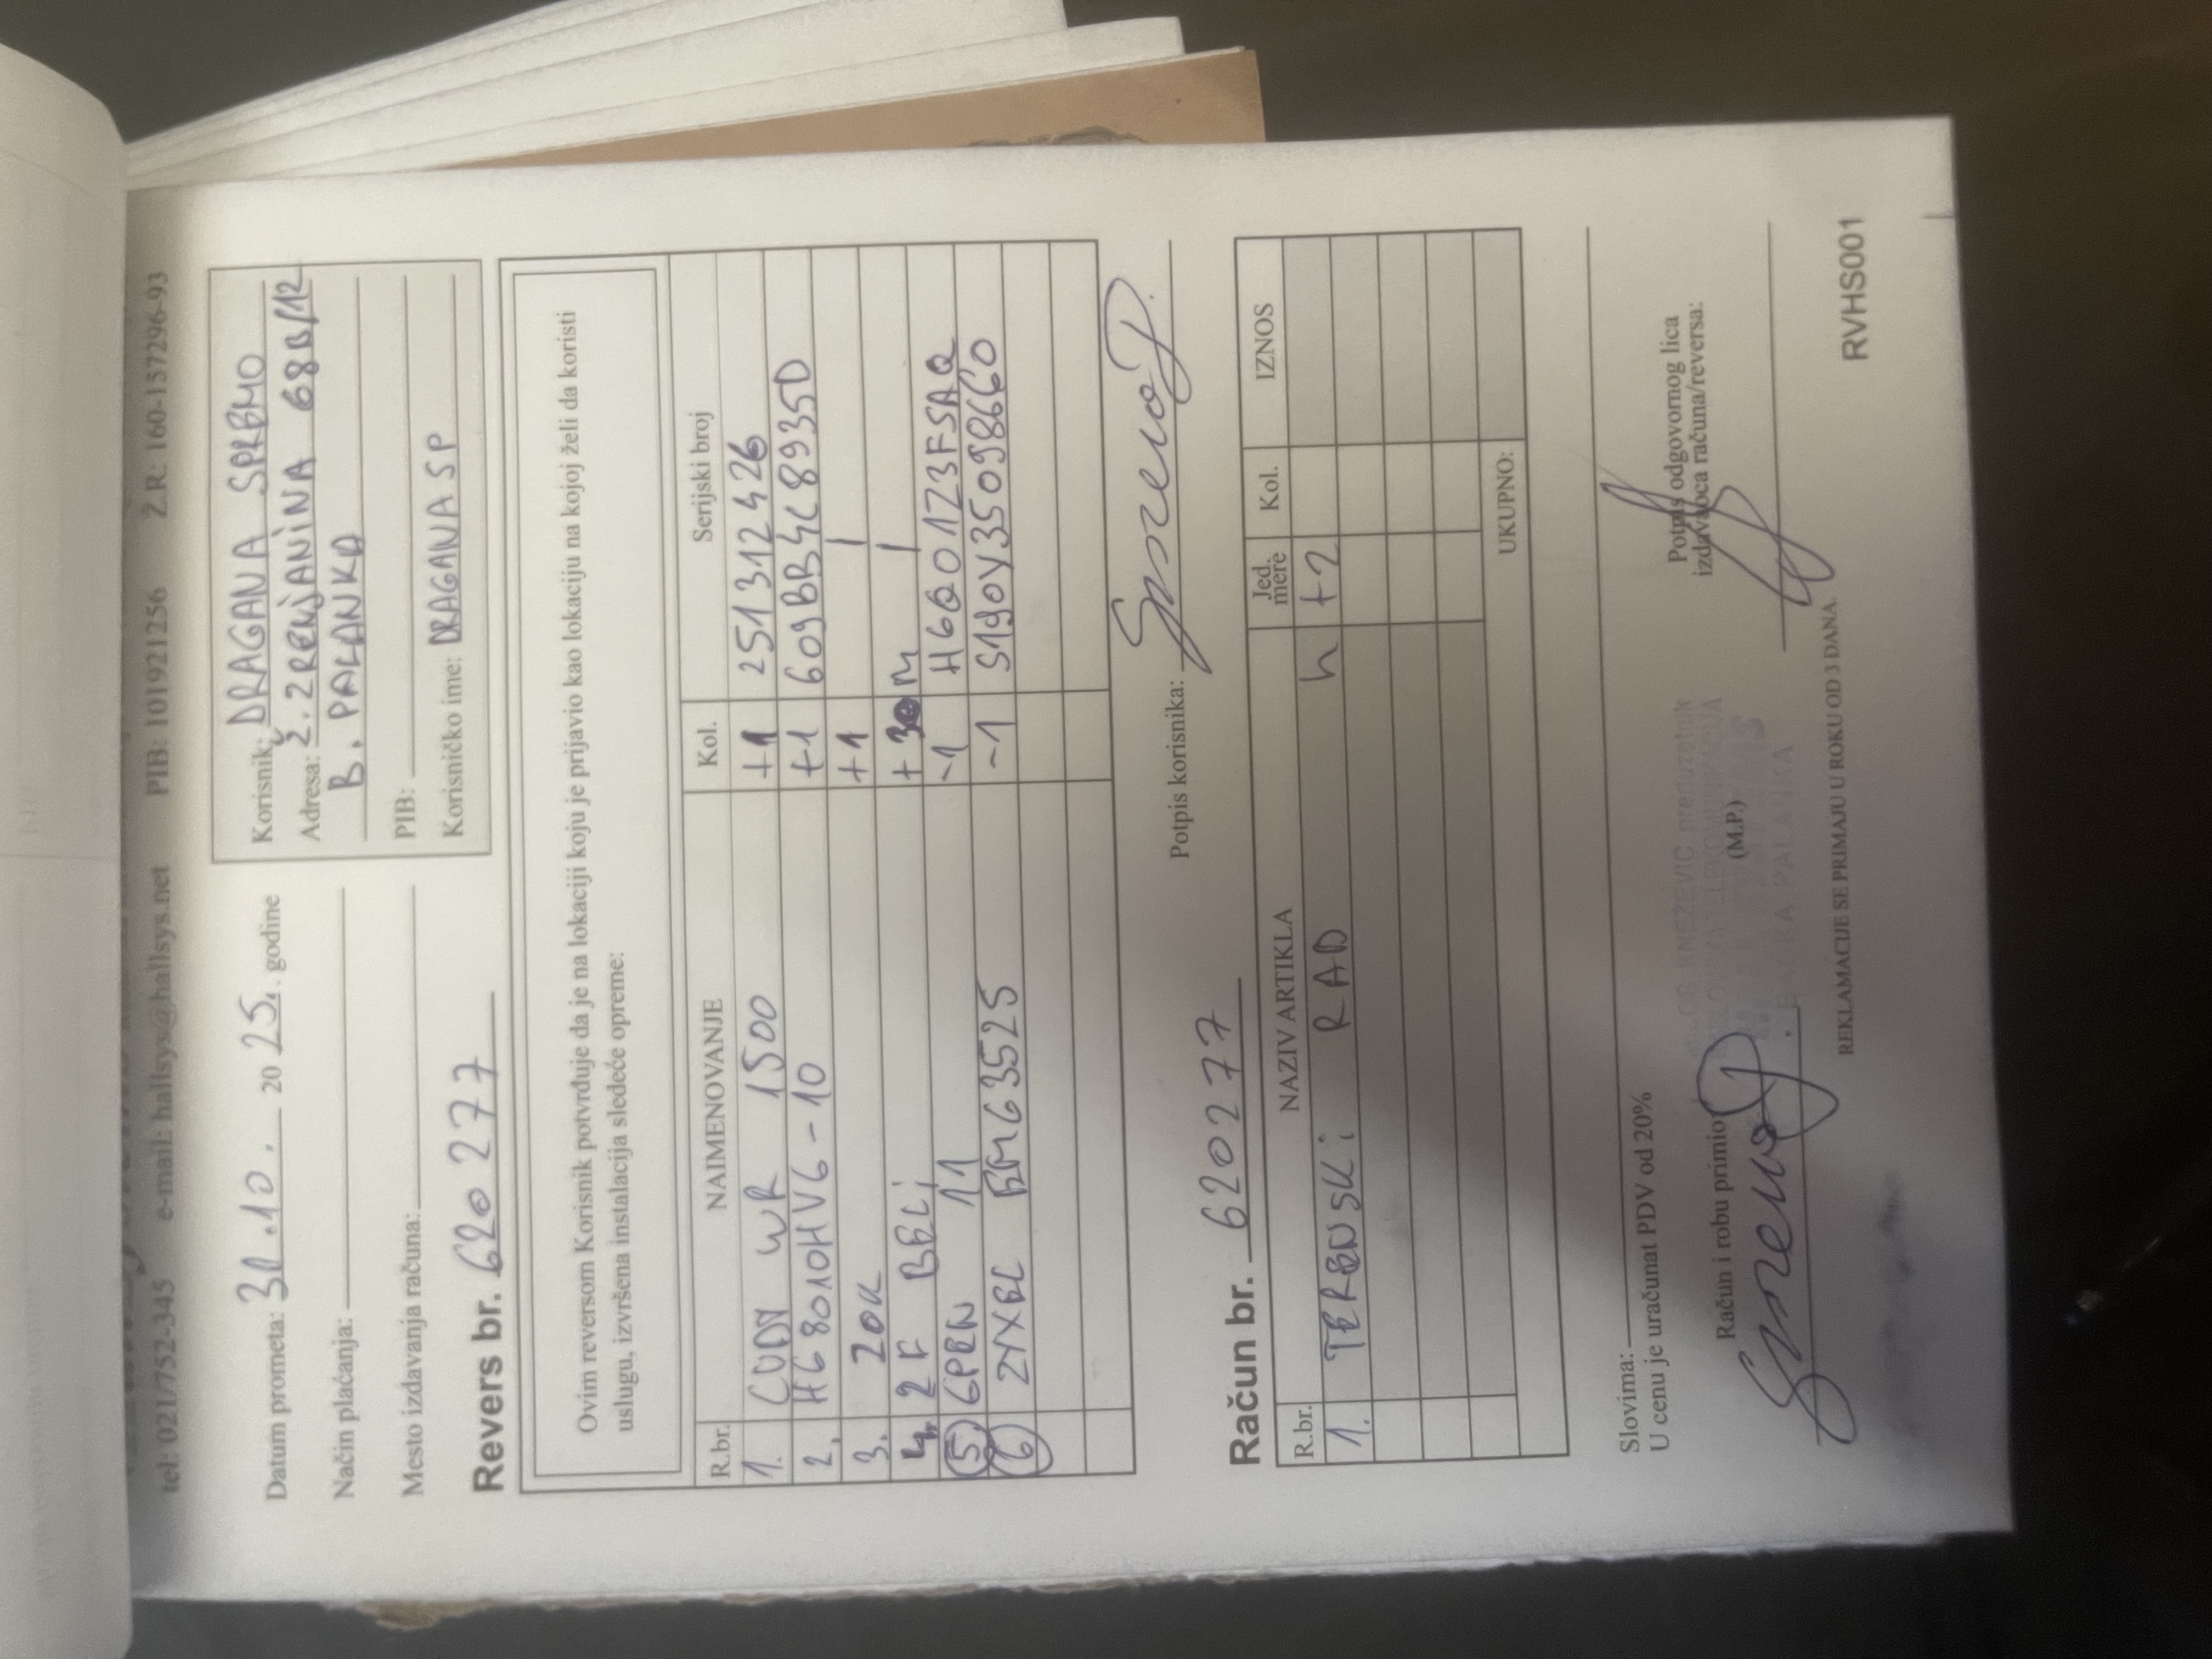 tel: 021/752-345 e-mail: hallsys@hallsys.net PIB: 101921256 Ž.R: 160-157296-93
Datum prometa: 31.10. 2025. godine
Način plaćanja:
Mesto izdavanja računa:
Korisnik: DRAGANA SPREMO
Adresa: Ž. ZRENJANINA 68B/12
B. PALANKA
PIB:
Korisničko ime: DRAGANASP
Revers br. 620277
Ovim reversom Korisnik potvrđuje da je na lokaciji koju je prijavio kao lokaciju na kojoj želi da koristi
uslugu, izvršena instalacija sledeće opreme:
R.br. NAIMENOVANJE Kol. Serijski broj
1. CUDY WR 1500 +1 251312426
2. HG8010HV6-10 +1 609BB4C8935D
3. ZOK +1 /
4. 2F BELI +30m /
5. GPEN 11 -1 H6Q01Z3FSAQ
6. ZYXEL EMG3525 -1 S190Y35098660
Potpis korisnika:
Račun br. 620277
R.br. NAZIV ARTIKLA Jed. mere Kol. IZNOS
1. TERENSKI RAD h +2
UKUPNO:
Slovima:
U cenu je uračunat PDV od 20%
Račun i robu primio
(M.P.)
Potpis odgovornog lica
izdavaoca računa/reversa:
REKLAMACIJE SE PRIMAJU U ROKU OD 3 DANA.
RVHS001